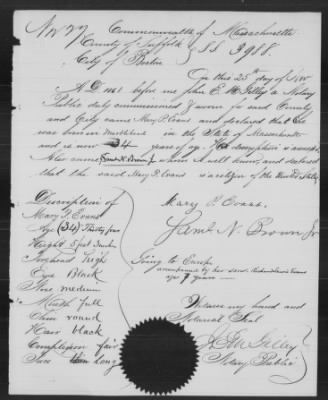 Commonwealth of Massachusetts
County of Suffolk SS 3988.
City of Boston
On this 25th day of Nov
A.D. 1881 before me John E. McGilley a Notary
Public duly commissioned & sworn for said County
and City came Mary P. Evans and declared that she
was born in in the State of Massachusetts
and is now 34 years of age. description is
Also came Saml N. Brown Jr whom I well know, and declared
that the said Mary P. Evans is a citizen of the United States
Description of
Mary P. Evans
Age (34) Thirty four
Height 5 feet Inches
Forehead high
Eyes Black
Nose medium
Mouth full
Chin round
Hair black
Complexion fair
Face long
Mary P. Evans.
Saml N. Brown Jr
Going to Europe
accompanied by her son
age 9 years —
Witness my hand and
Notarial Seal
Notary Public